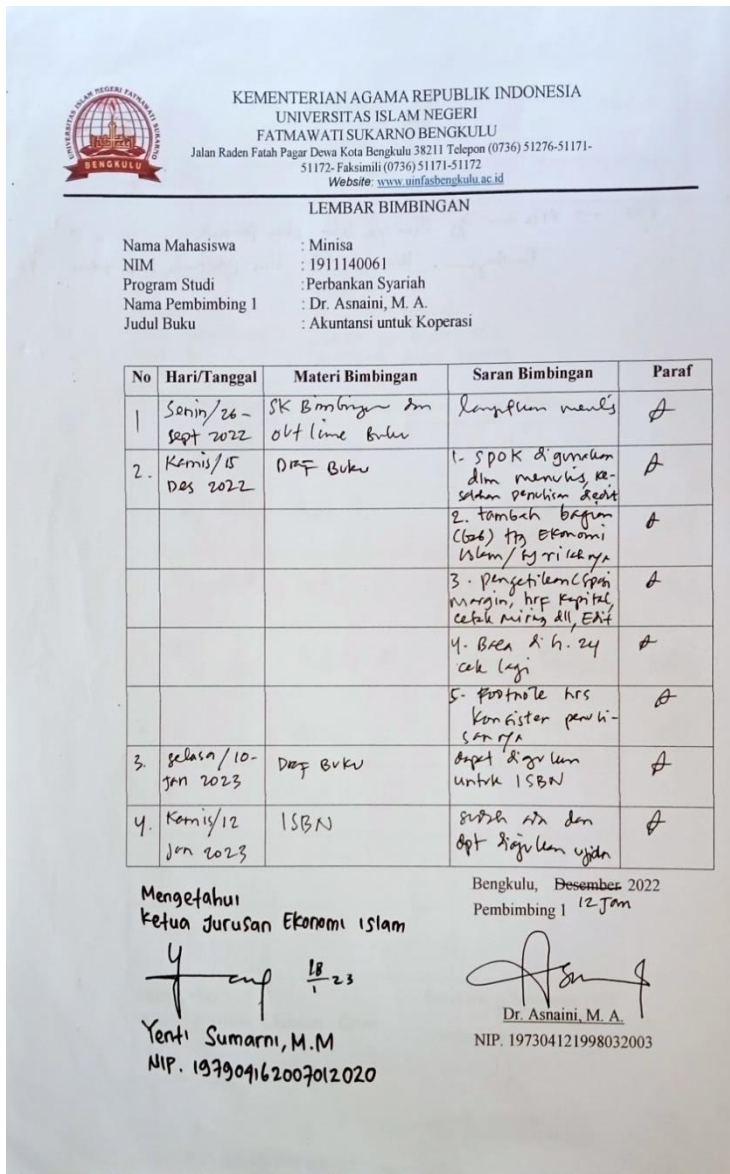 UNIVERSITAS ISLAM NEGERI FATMAWATI SUKARNO
BENGKULU
KEMENTERIAN AGAMA REPUBLIK INDONESIA
UNIVERSITAS ISLAM NEGERI
FATMAWATI SUKARNO BENGKULU
Jalan Raden Fatah Pagar Dewa Kota Bengkulu 38211 Telepon (0736) 51276-51171-
51172- Faksimili (0736) 51171-51172
Website: www.uinfasbengkulu.ac.id
LEMBAR BIMBINGAN
Nama Mahasiswa : Minisa
NIM : 1911140061
Program Studi : Perbankan Syariah
Nama Pembimbing 1 : Dr. Asnaini, M. A.
Judul Buku : Akuntansi untuk Koperasi
No Hari/Tanggal Materi Bimbingan Saran Bimbingan Paraf
1 Senin/26-
Sept 2022
SK Bimbingan dan
outline Buku
menulis
2. Kamis/15
Des 2022
Buku
1. SPOK digunakan
dlm menulis, ke-
salahan penulisan diedit
2. tambah bagian
(bab) ttg Ekonomi
Islam/
3. pengetikan (spasi
Margin, hrf kapital,
cetak miring dll, Edit
4. Baca di h. 24
cek lagi
5. Footnote hrs
konsisten penuli-
sannya
3. Selasa/10-
Jan 2023
Buku
dapat diajukan
untuk ISBN
4. Kamis/12
Jan 2023
ISBN
sudah dan
dpt diajukan
Bengkulu, Desember 2022
Pembimbing 1 12 Jan
Dr. Asnaini, M. A.
NIP. 197304121998032003
Mengetahui
Ketua Jurusan Ekonomi Islam
18/1 23
Yenti Sumarni, M.M
NIP. 197904162007012020